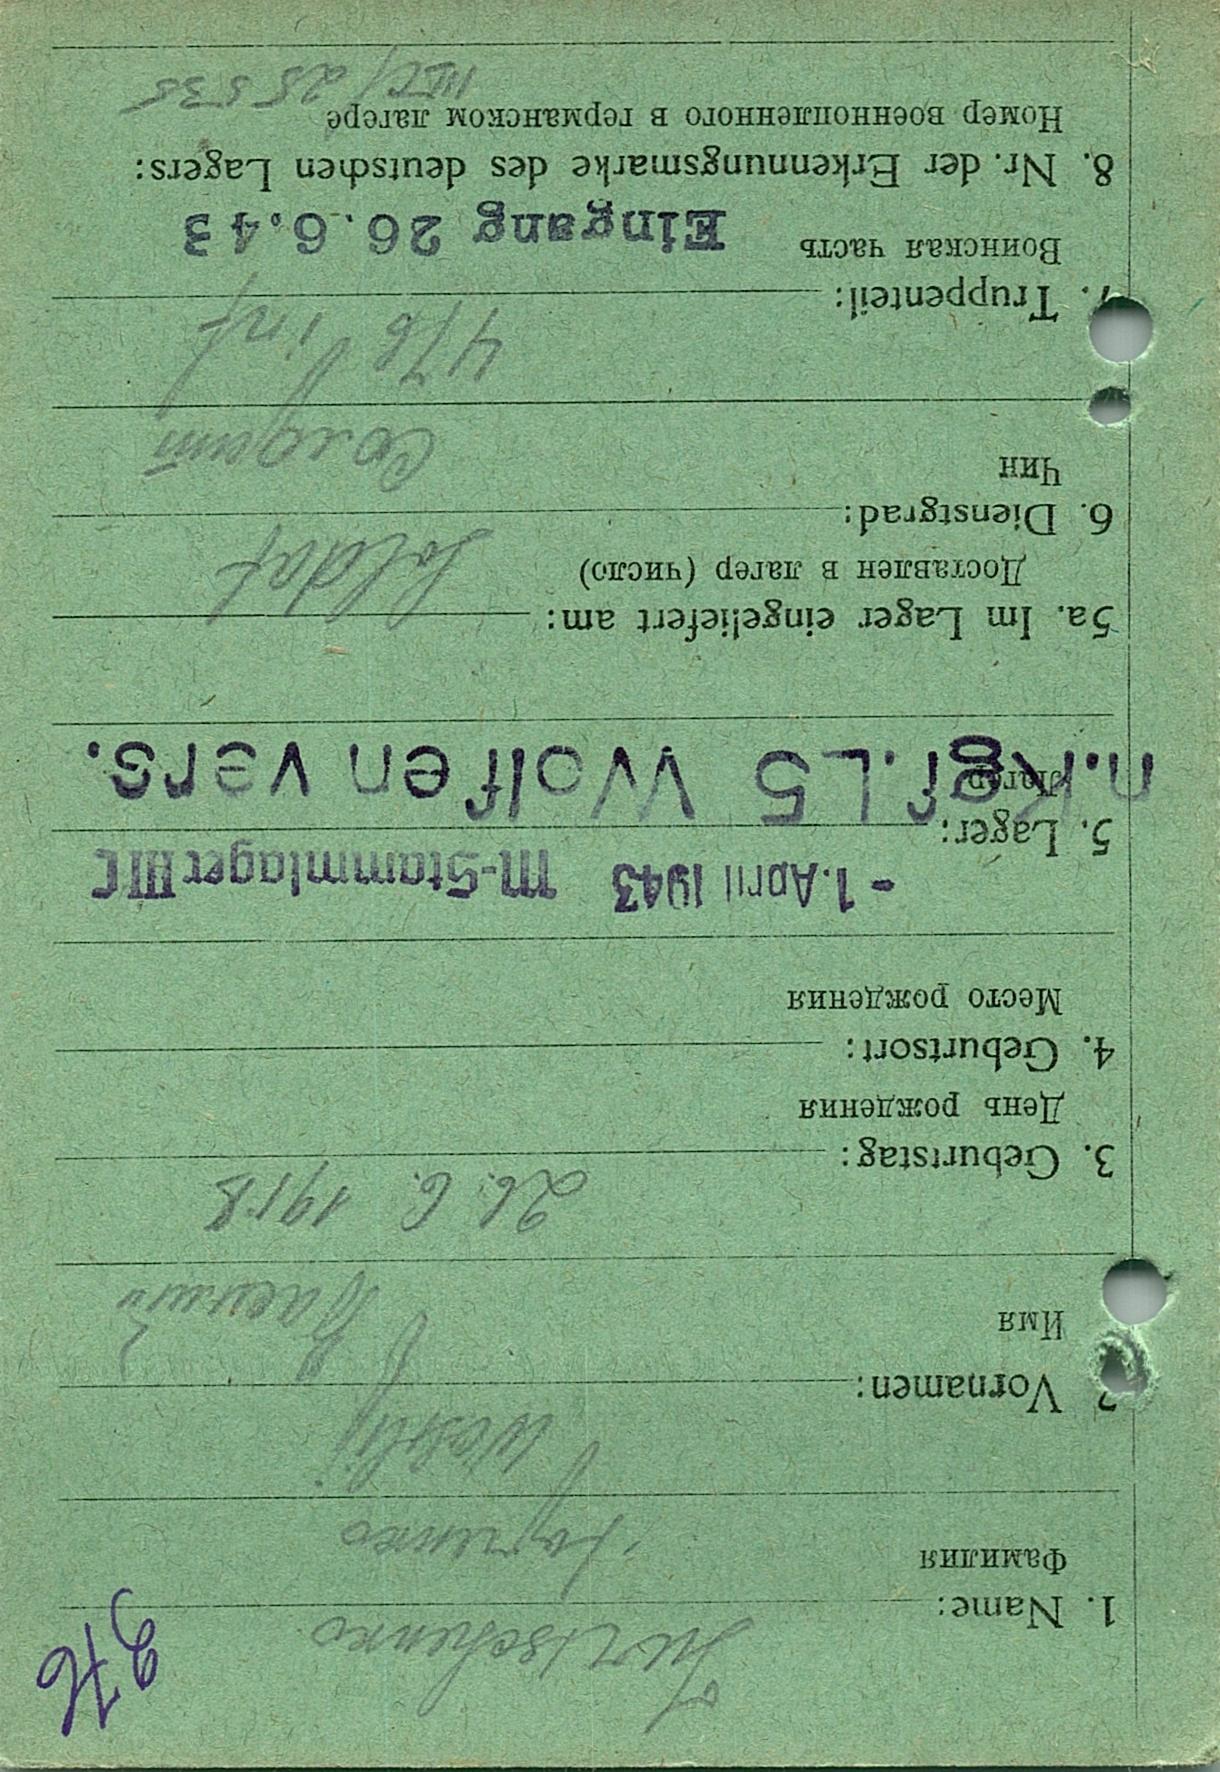 1. Name:
Фамилия
2 Vornamen: Wasilij
Имя Василий
3. Geburtstag: 26. 6. 1918
День рождения
4. Geburtsort:
Место рождения
- 1. April 1943 M-Stammlager III C
5. Lager:
Лагер
n. Kgf. L5 Wolfen vers.
5a. Im Lager eingeliefert am:
Доставлен в лагер (число)
6. Dienstgrad: Soldat
Чин Солдат
7. Truppenteil: 476 inf
Воинская часть Eingang 26.6.43
8. Nr. der Erkennungsmarke des deutschen Lagers:
Номер военнопленного в германском лагере
III C/25535